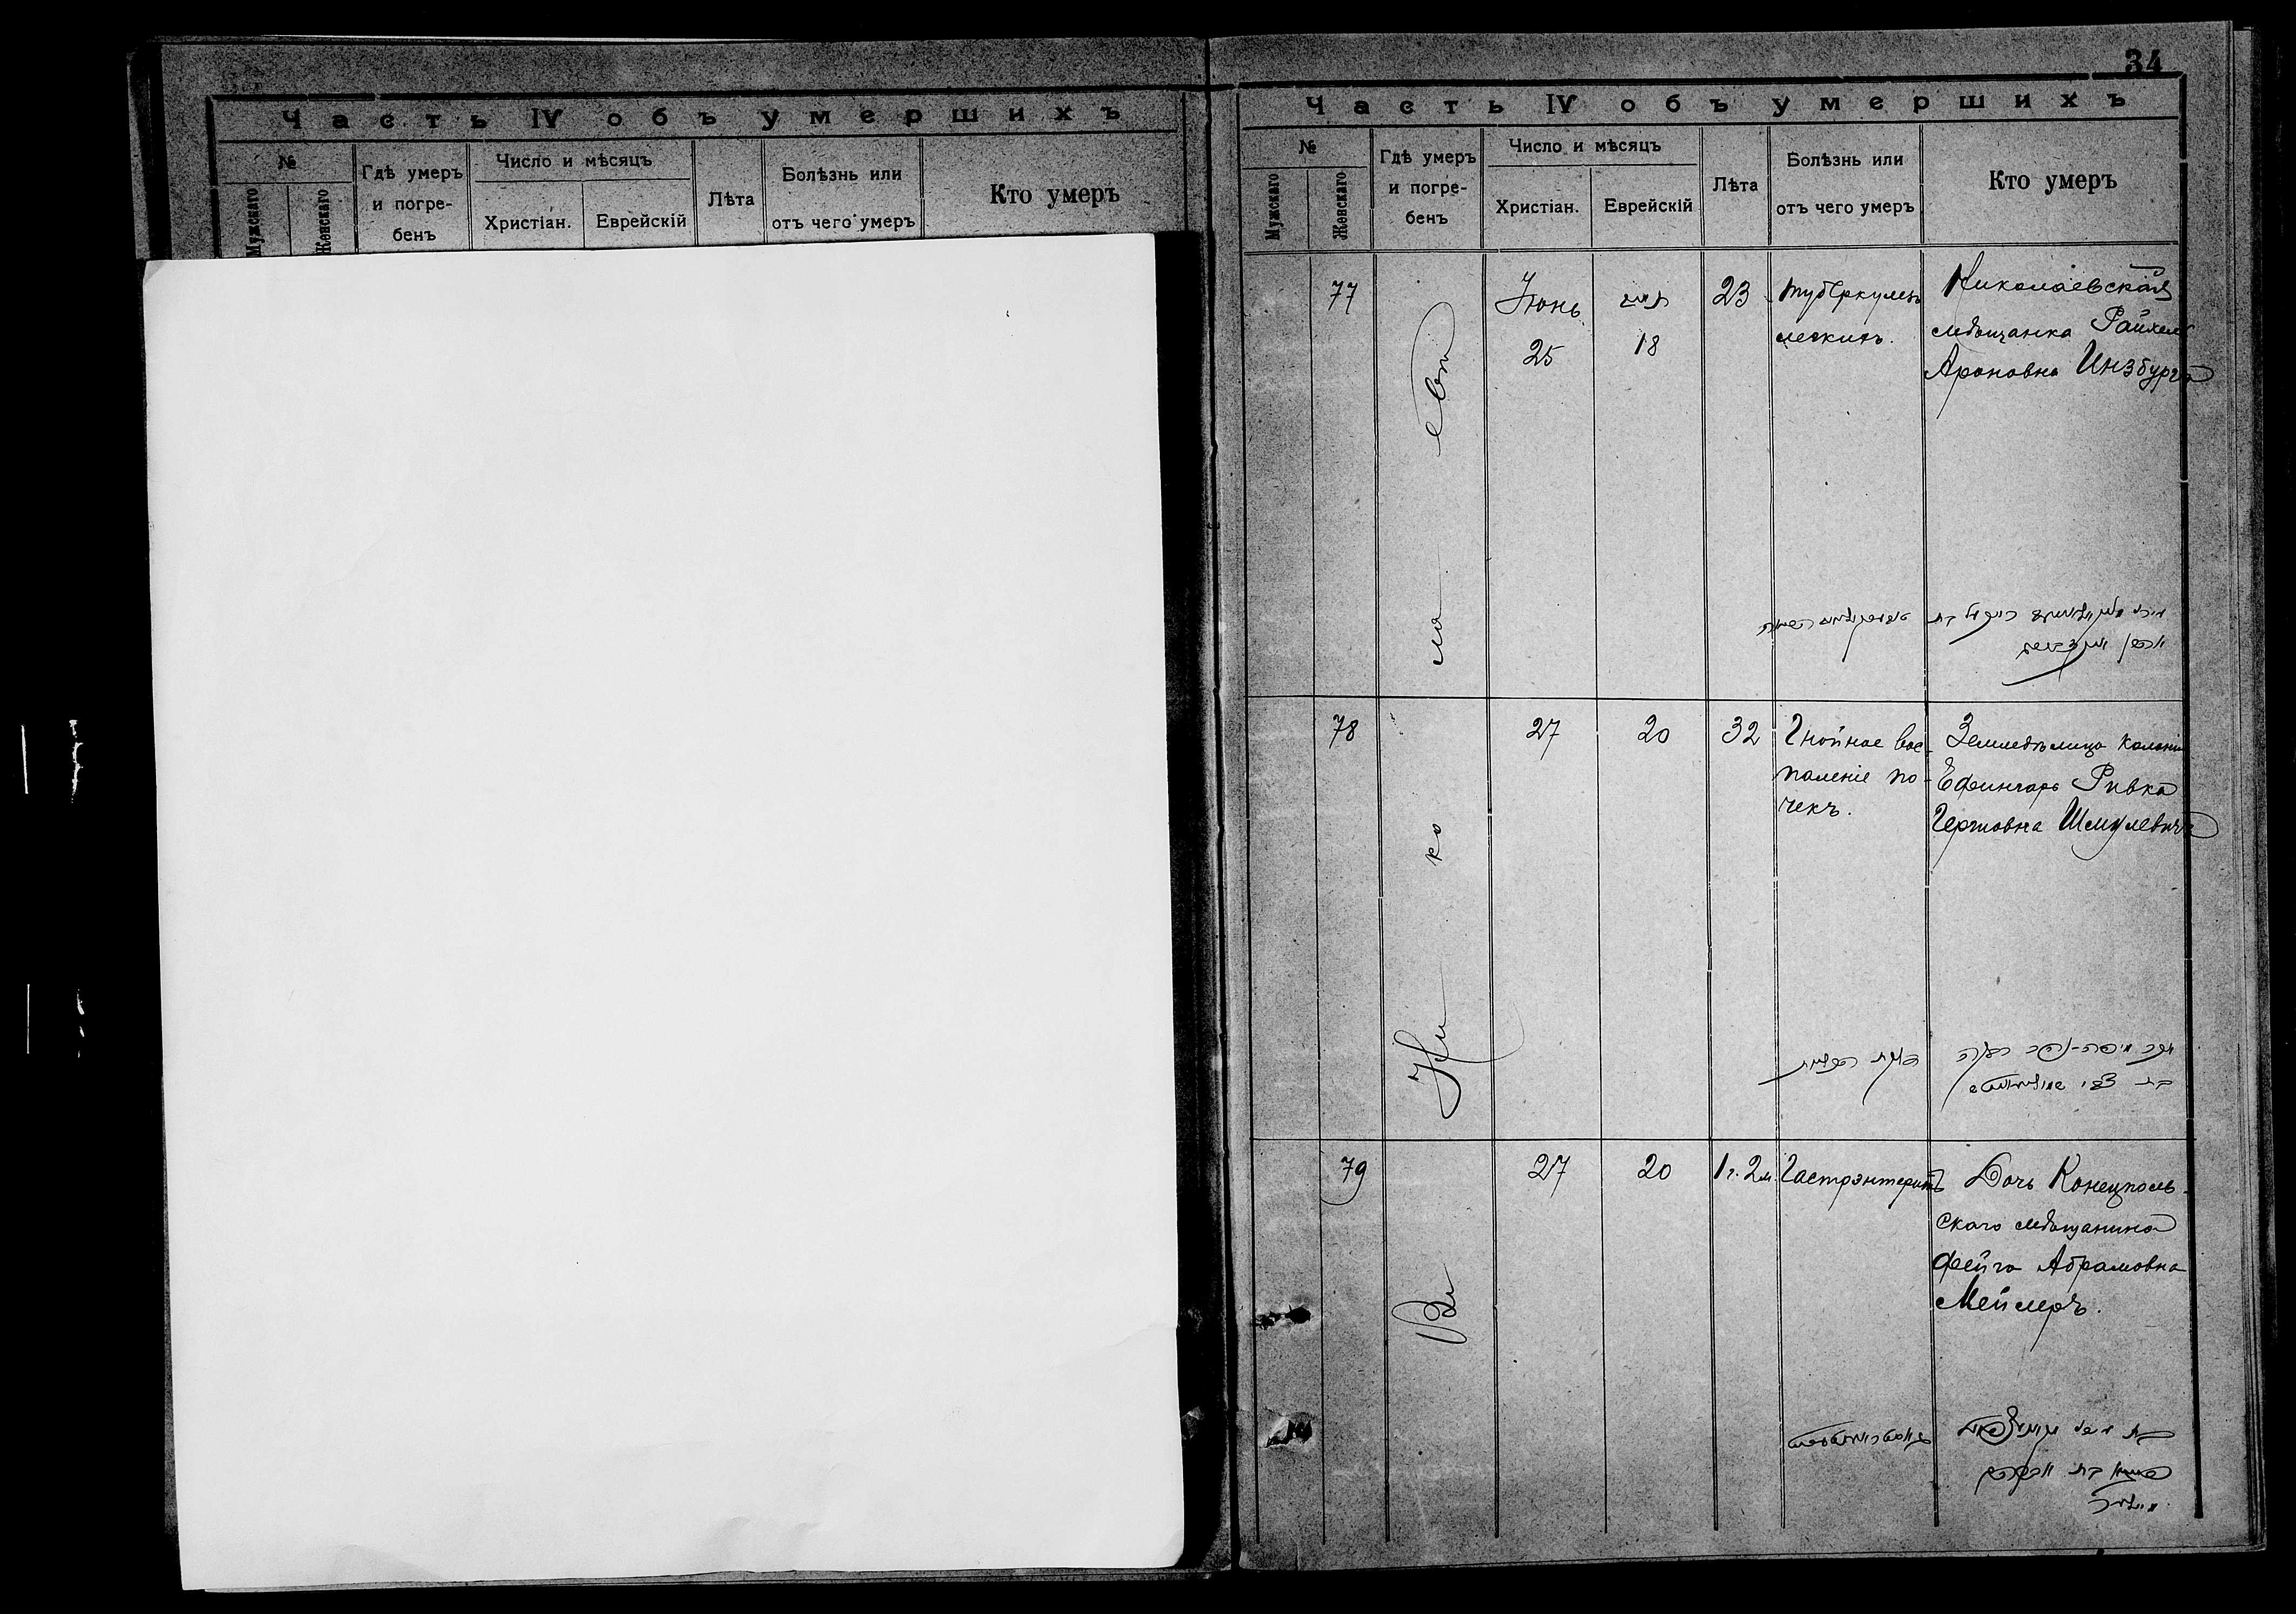 Часть IV объ умершихъ
№
Мужскаго
Женскаго
Гдѣ умеръ
и погре-
бенъ
Число и мѣсяцъ
Христіан.
Еврейскій
Лѣта
Болѣзнь или
отъ чего умеръ
Кто умеръ
34
Часть IV объ умершихъ
№
Мужскаго
Женскаго
Гдѣ умеръ
и погре-
бенъ
Число и мѣсяцъ
Христіан.
Еврейскій
Лѣта
Болѣзнь или
отъ чего умеръ
Кто умеръ
77
Іюнь
25
תמוז
18
23
туберкулезъ
легкихъ.
Николаевская
мѣщанка Райхель
Ароновна Инзбургъ
78
27
20
32
Гнойное вос-
паленіе по-
чекъ.
Земледѣлица колоніи
Ефингаръ Ривка
Гершовна Шмулевичъ
בת צבי
79
27
20
1 г. 2 м.
Гастроэнтеритъ
Дочь Конецполь-
скаго мѣщанина
Фейга Абрамовна
Мейлеръ.
Въ Николаевѣ